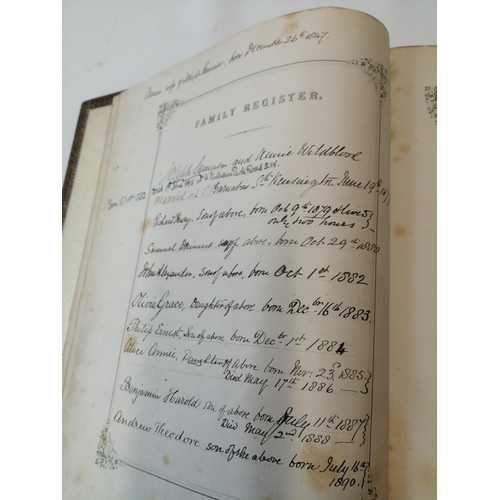 wife of born December 26th 1847.
FAMILY REGISTER.
and Annie Wildblood
Road S.W.
Married at St Barnabas Sth Kensington June 19th
Son of above, born Oct 9th 1879 & lived
only two hours
Samuel son of above, born Oct 29th 1880
John Alexander, Son of above, born Oct 1st 1882
Olivia Grace, Daughter of above born Decbr 16th 1883.
Philip Ernest, Son of above born Decbr 1st 1884
Alice Annie, Daughter of above born Nov: 23rd 1885
Died May 17th 1886
Benjamin Harold son of above born July 11th 1887
Died May 2nd 1888
Andrew Theodore son of the above born July 16th
1890.